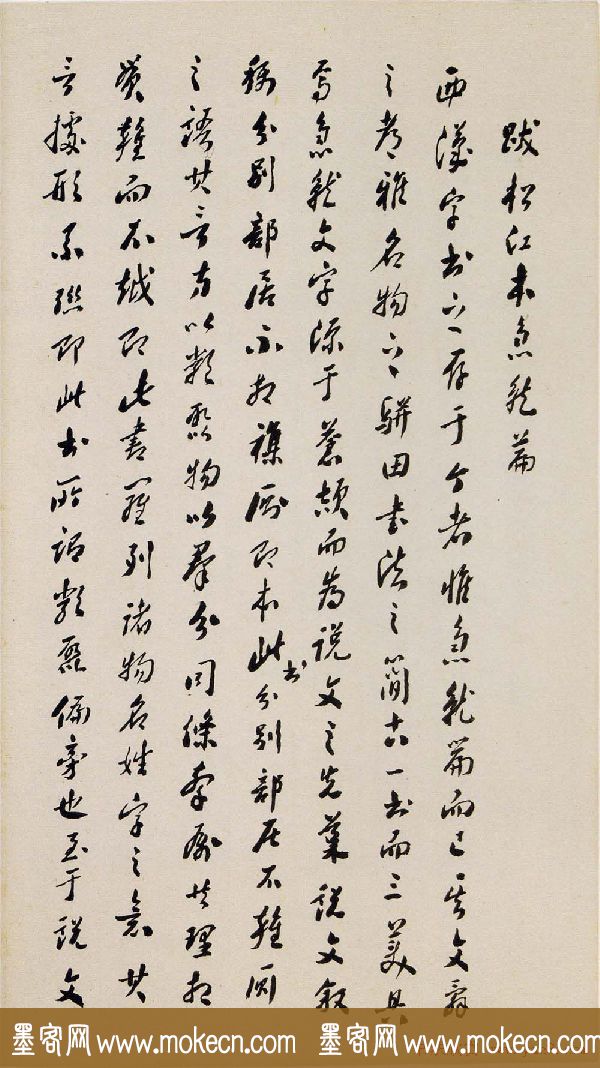 跋松江本急就篇
西漢字书之存于今者惟急就篇而已其文辞
之考雅名物之骈田书法之簡古一书而三美具
焉急就文字源于蒼頡而為说文之先葉说文叙
稱分别部居不相襍厕即本此书分别部居不雜厕
之語其言方以類聚物以羣分同條牽属共理相
贯雜而不越即此書羅列諸物名姓字之意其
言據形系聯即此书所谓類聚偏旁也至于说文
墨客网 www.mokecn.com 墨客网 www.mokecn.com